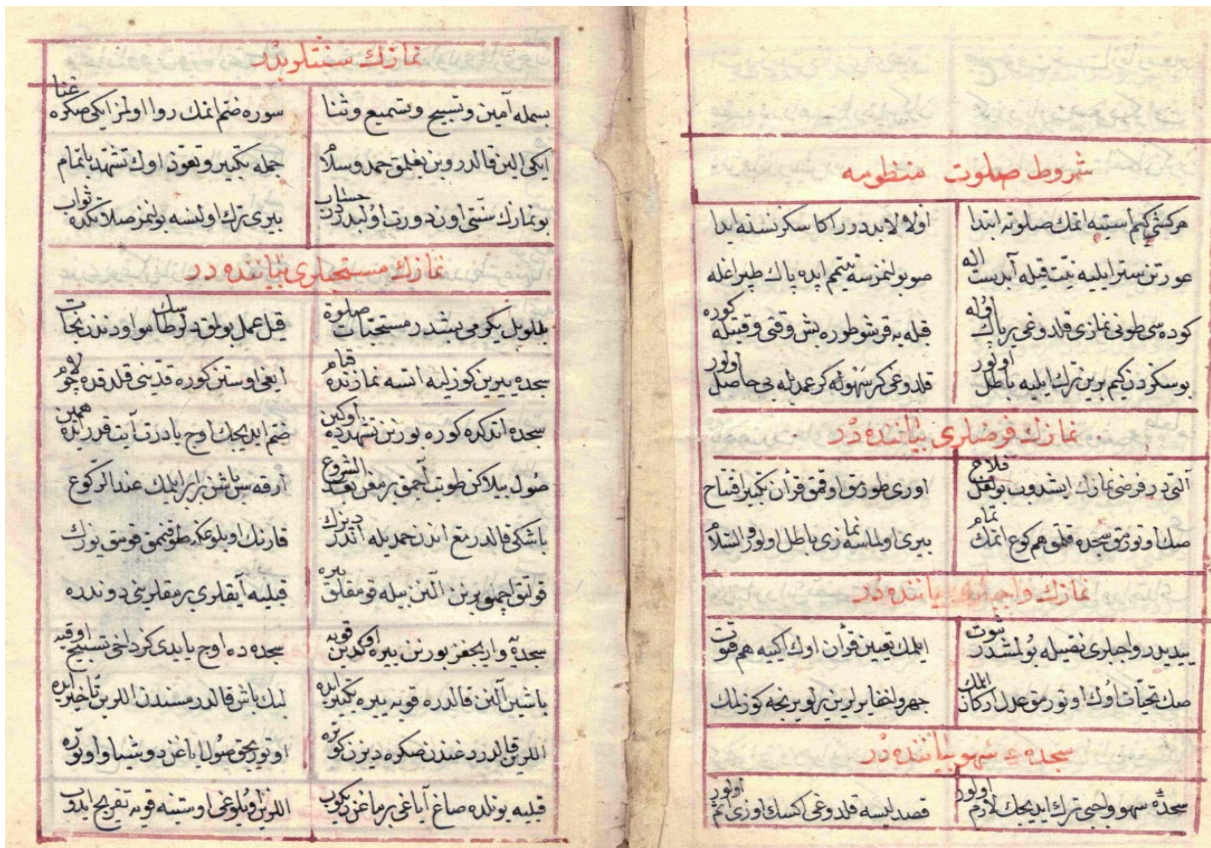 شروط صلوت منظومه
هر كشی كیم استیه اتمك صلوته ابتدا اولا لابددر اكا سكز نسنه ایدا
عورتن ستر ایلیه نیت قیله آبدست اله صو بولنمزسه تیمم ایده پاك طپراغله
كوده سی طونی نمازی قلدوغی یر پاك اوله قبله یه قرشو طوره بش وقتی وقتیله كوره
بو سكزدن كیم برین ترك ایلیه باطل اولور قلدوغی كر سهوله كر عمدیله بی حاصل اولور
نمازك فرضلری بیاننده در
آلتی در فرضی نمازك ایشدوب بولغل فلاح اوری طورمق اوقمق قرآن تكبیر افتتاح
صك اوتورمق سجده قلمق هم ركوع اتمك تمام بیری اولماسه نمازی باطل اولور والسلام
نمازك واجبلری بیاننده در
ییدیدر واجبلری تفصیله بولمشدر ثبوت ایلمك تعیین قرآن اوك ایكییه هم قنوت
صك تحیات اوك اوتورمق عدل اركان ایلمك جهر و اخفا یرلرین یرلو یرنجه كوزلمك
سجدهٔ سهو بیاننده در
سجدهٔ سهو واجبی ترك ایدیجك لازم اولور قصد ایلسه قلدوغی اكسك اوزی آثم اولور
نمازك سنتلریدر
بسمله آمین و تسبیح و تسمیع و ثنا سوره ضم اتمك روا اولمز ایكی صكره غنا
ایكی الین قالدروبن بغلمق حمد و سلام جمله تكبیر و تعوذ اوك تشهد یا تمام
بو نمازك سنتی اون دورت اولبدر حساب بیری ترك اولنسه بولنمز صلاتكده ثواب
نمازك مستحبلری بیاننده در
بلو بیل یكرمی بشدر مستحبات صلوة قیل عمل بولمق دلرسك طاموا ودندن نجات
سجده یرین كوزلیه اتسه نمازنده قیام ایغی اوستن كوره قدینی قلدقده لام
سجده اتدكده كوره بورنن تشهدده اوكین ضم ایدیجك اوج یا درت آیت قرر انده همین
صول بیلاكن طوت آچمق برمغن بعد الشروع ارقه سی باشن برابر ایلیك عند الركوع
باشكی قالدرمغ اندن حمدیله اندر دیزك قارنك اویلوغكه طوقنمق قومق یوزك
قولتق اچمق یرین الن بیله قومقلق ییره قبلیه آیقلری برمقلرینی دوندره
سجدهٔ وار یجغز بورنن ییره اوكدین قویه سجده ده اوج یا یدی كرد لنی تسبیح اوقیه
باشین آلنن قالدره قویه ییره تكبیر ایده لیك باش قالدرمسندن اللرین تأخیر ایده
اللرین قالدردغندن صكره دیزن كوتوره اوتوریجق صول ایاغن دوشیا و اوتوره
قبلیه یوللده صاغ آیاغی برماغن دیكوب اللرینی اویلوغی اوستینه قویه تفریج ایدوب